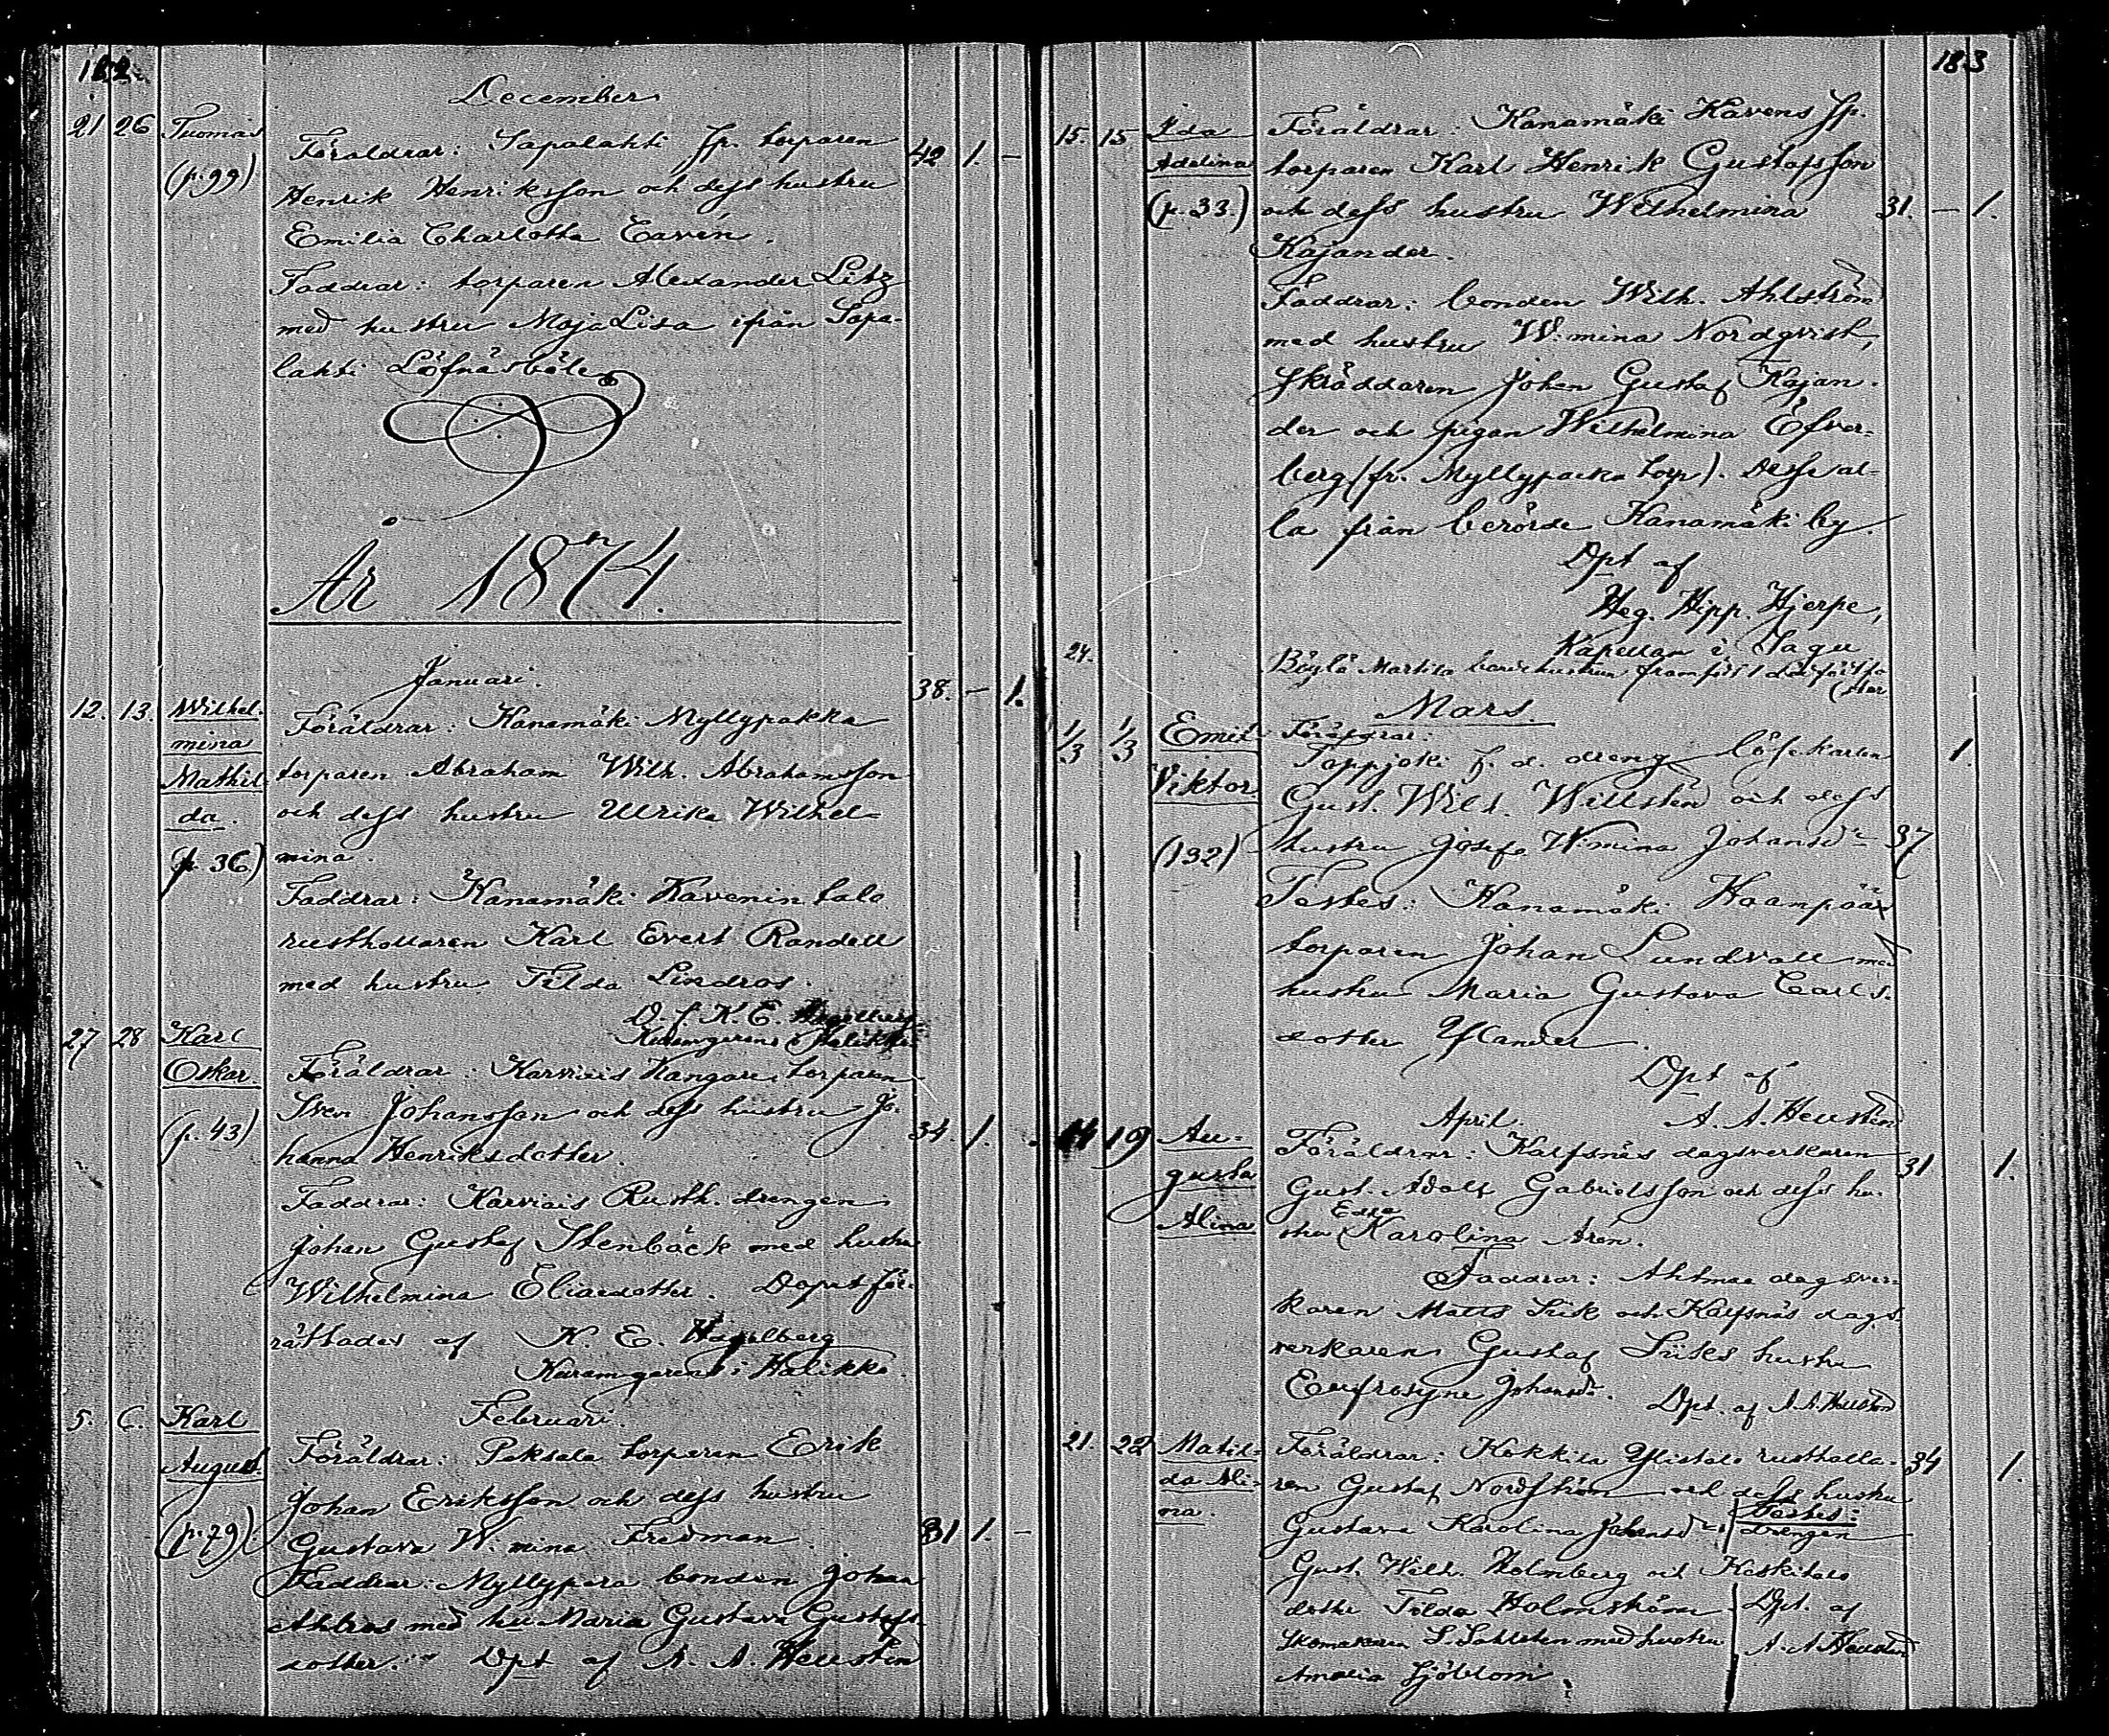 182.
December
21 26 Tuomas
(p. 99)
Föräldrar: Sapalahti Sp. torparen 42 1. –
Henrik Henriksson och dess hustru
Emilia Charlotta Cavén.
Faddrar: torparen Alexander Litz
med hustru Maja Lisa ifrån Sapa-
lahti Löfnäsböle
År 1874.
Januari.
12. 13. Wilhel-
mina
Mathil-
da.
(p. 36)
38. – 1.
Föräldrar: Kanamäki Myllypakka
torparen Abraham Wilh. Abrahamsson
och dess hustru Ulrika Wilhel-
mina.
Faddrar: Kanamäki Kavenintalo
rusthollaren Karl Evert Randell
med hustru Tilda Lindros.
D. f. K. E. Hagelberg
Kuramgerens i Halikko
27 28 Karl
Oskar.
(p. 43)
Föräldrar: Karviais Kangare torparen
Sven Johansson och dess hustru Jo- 34 1.
hanna Henriksdotter.
Faddrar: Karviais Rusth. drengen
Johan Gustaf Stenbäck med hustru
Wilhelmina Eliaedotter. Dopet för-
rättades af K. E. Hagelberg
i Halikko.
Februari.
5. 6. Karl
August.
(p. 79)
Föräldrar: Peksala torparen Erik
Johan Eriksson och dess hustru
Gustava W:mina Fredman. 31 1. –
Faddrar: Myllyperä bonden Johan
Ahlros med hu Maria Gustava Gustafs-
dotter. Dpt af A. A. Heusten
183
15. 15 Ida
Adelina
(p. 33.)
Föräldrar: Kanamäki Kavens Sp.
torparen Karl Henrik Gustafsson
och dess hustru Wilhelmina 31. – 1.
Kajander.
Faddrar: bonden Wilh. Ahlström
med hustru W:mina Nordqvist,
Skräddaren Johan Gustaf Kajan-
der och pigan Wilhelmina Öfver-
berg (fr. Myllypacka torp). Desse al-
la från berörde Kanamäki by.
Dpt af
Heg. Hipp. Hjerpe,
Kapellan i Sagu
24.
Böylä Martila bondehustrun framfödt dödt foster
Mars.
1/3 1/3 Emil
Viktor.
(132)
Föräldrar:
Toppjoki f. d. dreng lösekarlen 1.
Gust. Wilh. Willstén och dess
hustru Josefa W:mina Johansdr 37
Testes: Kanamäki Haanpää
torparen Johan Lundvall med
hustru Maria Gustava Carls-
dotter Ylander.
Dpt af
A. A. Heustén
April
14 19 Au-
gusta
Alina
Föräldrar: Kalfsnäs dagsverkaren 31 1.
Gust. Adolf Gabrielsson och dess hu-
stru Edla Karolina Arén.
Faddrar: Ahtmaa dagsver-
karen Matts Siik och Kalfsnäs dags-
verkaren Gustaf Siiks hustru
Eufrosyne Johansdr. Dpt. af A. A. Heustén
21. 22 Matil-
da Ali-
na.
Föräldrar: Kokkila Ylistalo rusthålla- 34 1.
ren Gustaf Nordström och dess hustru
Gustava Karolina Johansdr. Testes: Drengen
Gust. Wilh. Holmberg och Keskitalo
dotter Tilda Holmström Dpt. af
Skomakaren S. Sahlsten med hustru A. A. Heustén
Amalia Sjöblom.